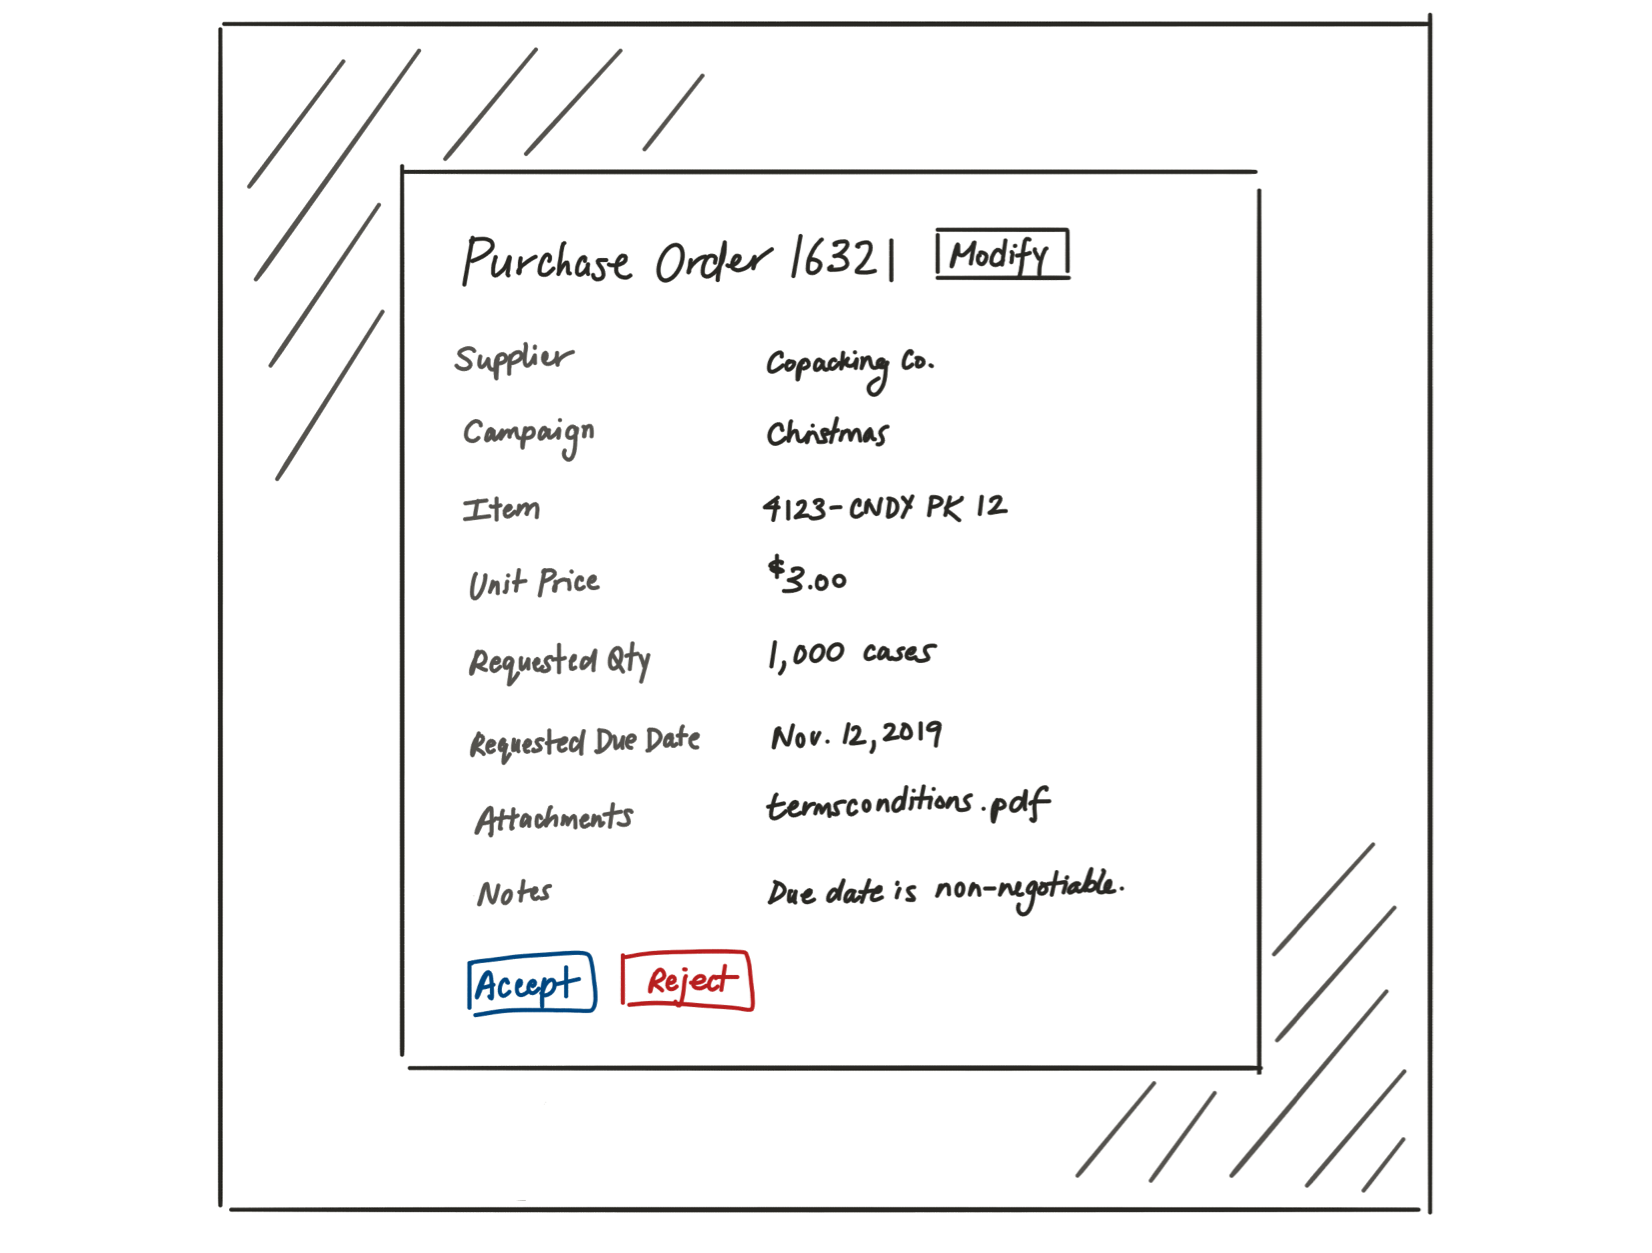 Purchase Order 16321 Modify
Supplier Copacking Co.
Campaign Christmas
Item 4123-CNDY PK 12
Unit Price $3.00
Requested Qty 1,000 cases
Requested Due Date Nov. 12, 2019
Attachments termsconditions.pdf
Notes Due date is non-negotiable.
Accept Reject